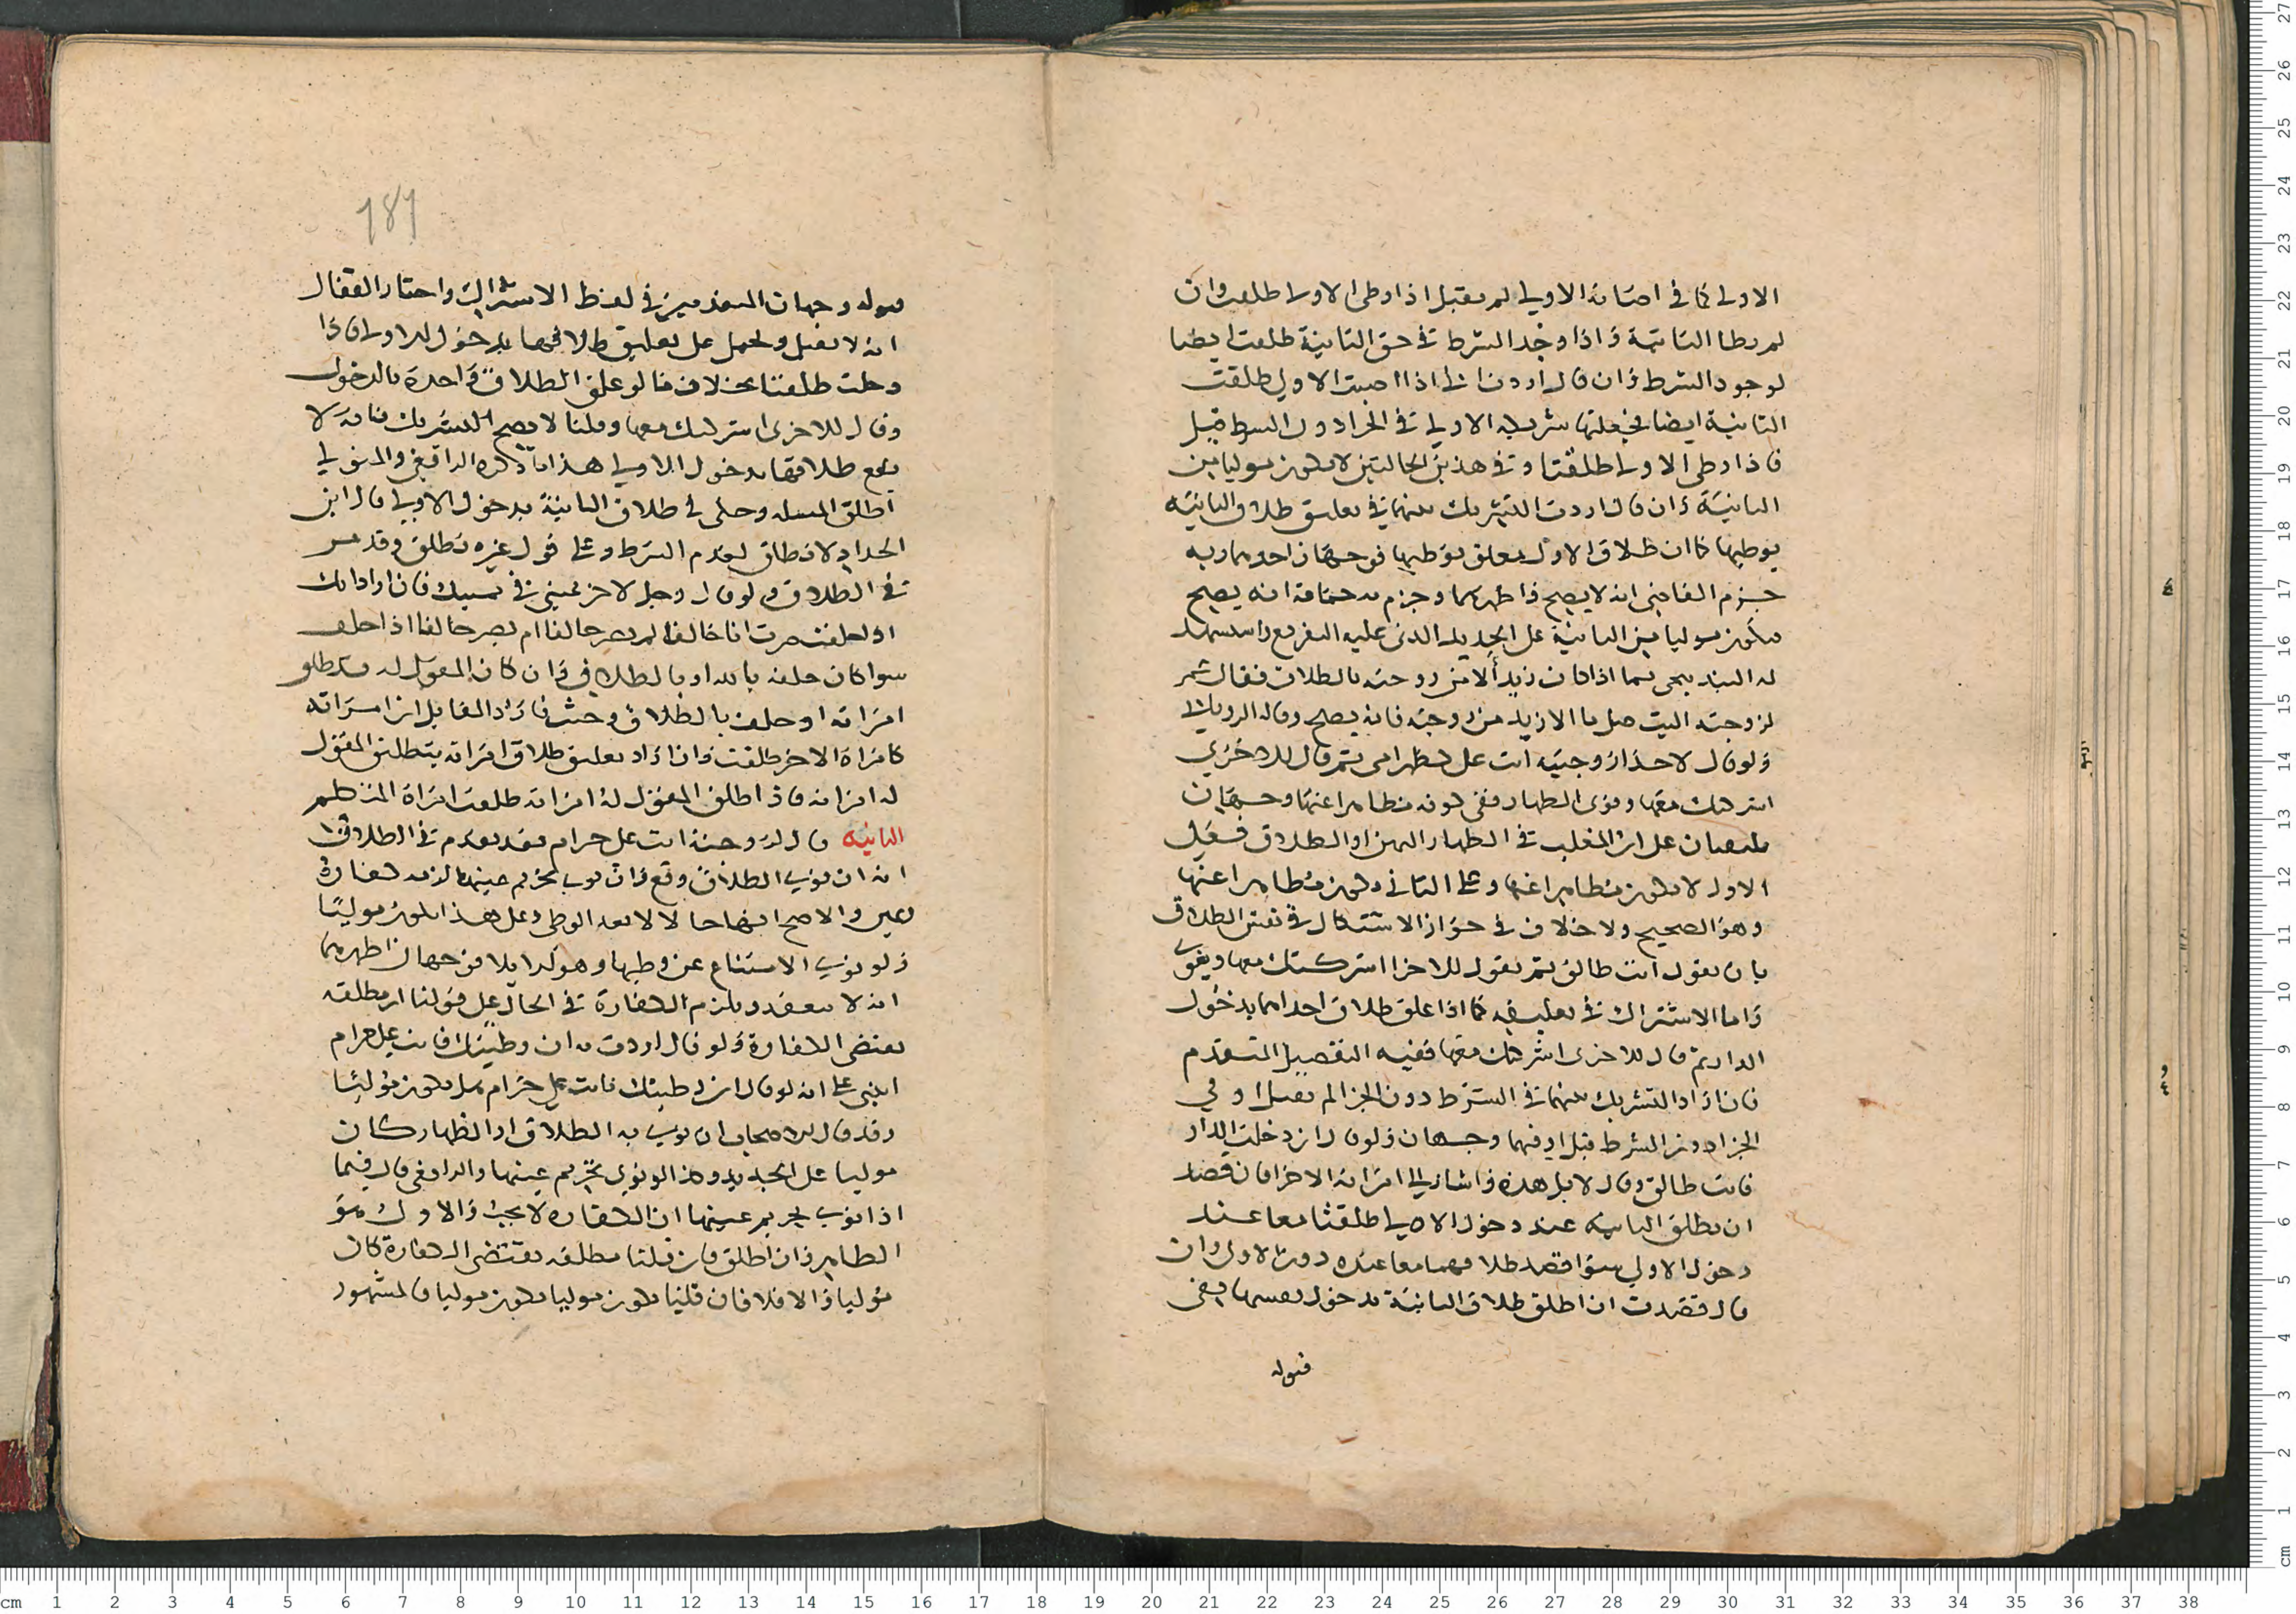 الاولى كما في اصابة الاولى لم يقبل اذا وطى الاولى طلقت وان
لم يطا الثانية واذا وجد الشرط في حق الثانية طلقت ايضا
لوجود الشرط وان قال اردت اني اذا اصبت الاولى طلقت
الثانية ايضا فجعلتها شريكة الاولى في الجزاء دون الشرط قبل
فاذا وطى الاولى طلقتا وفي هذين الحالتين لا يكون موليا من
الثانية وان قال اردت التشريك بينهما في تعليق طلاق الثانية
بوطيها كما ان طلاق الاولى معلق بوطيها فوجهان احدهما وبه
جزم القاضي انه لا يصح واظهرهما وجزم به جماعة انه يصح
فيكون موليا من الثانية على الجديد الذي عليه التفريع
له البندنيجي بما اذا كان زيد ألا من زوجته بالطلاق فقال عمر
لزوجته انت مثل ما الا زيد من زوجته فانه يصح وقال الروياني
ولو قال لاحدى زوجتيه انت علي كظهر امي ثم قال للاخرى
اشركتك معها ونوى الظهار ففي كونه مظاهرا عنها وجهان
ملتفتان على ان المغلب في الظهار اليمين او الطلاق فعلى
الاول لا يكون مظاهرا عنها وعلى الثاني يكون مظاهرا عنها
وهو الصحيح ولا خلاف في جواز الاشتراك في نفس الطلاق
بان يقول انت طالق ثم يقول للاخرى اشركتك معها وينوي
واما الاشتراك في تعليقه كما اذا علق طلاق احداهما بدخول
الدار ثم قال للاخرى اشركتك معها ففيه التفصيل المتقدم
فان اراد التشريك بينهما في الشرط دون الجزا لم يقبل او في
الجزاء دون الشرط قبل او فيهما وجهان ولو قال ان دخلت الدار
فانت طالق وقال لا بل هذه واشار الى امراته الاخرى فان قصد
ان يطلق الثانية عند دخول الاولى طلقتا معا عند
دخول الاولى سوا قصد طلاقهما معا عنده دون الاولى وان
قال قصدت ان اطلق طلاق الثانية بدخول نفسها ففي
قبوله
181
قبوله وجهان المتقدمين في لفظ الاشتراك واختار القفال
انه لا يقبل ويحمل على تعليق طلاقها بدخول الاولى فاذا
دخلت طلقتا بخلاف ما لو علق الطلاق واحدة بالدخول
وقال للاخرى اشركتك معها وقلنا لا يصح التشريك فانه لا
يقع طلاقها بدخول الاولى هذا ما ذكره الرافعي والمتولي
اطلق المسله وحكى في طلاق الثانية بدخول الاولى قال ابن
الحداد لا تطلق لعدم الشرط وعلى قول غيره تطلق وقد مر
في الطلاق ولو قال رجل لاخر يميني في يمينك فان اراد انك
اذا حلفت صرت انا حالفا لم يصر حالفا ام يصر حالفا اذا حلف
سوا كان حلفه بالله او بالطلاق وان كان المقول له قد طلق
امراته او حلف بالطلاق وحنث فاراد القايل ان امراته
كامراة الاخر طلقت وان اراد تعليق طلاق امراته بتطليق المقول
له امراته فاذا طلق المقول له امراته طلقت امراة المتكلم
الثانيه قال لزوجته انت علي حرام فقد تقدم في الطلاق
انه ان نوى الطلاق وقع وان نوى تحريم عينها لزمه كفارة
يمين والاصح انها حالا لا بعد الوطى وعلى هذا يكون موليا
ولو نوى الامتناع عن وطيها وهو الايلا فوجهان اظهرهما
انه لا ينعقد ويلزم الكفارة في الحال على قولنا ان مطلقه
يقتضي الكفارة ولو قال اردت به ان وطيتك فانت علي حرام
انبنى على انه لو قال ان وطيتك فانت علي حرام هل يكون موليا
وقد قال الاصحاب ان نوى به الطلاق او الظهار كان
موليا على الجديد وكذا لو نوى تحريم عينها والرافعي قال فيما
اذا نوى تحريم عينها ان الكفارة لا تجب والاول هو
الظاهر وان اطلق فان قلنا مطلقه يقتضي الكفارة كان
موليا والا فلا فان قلنا يكون موليا يكون موليا فالمشهور